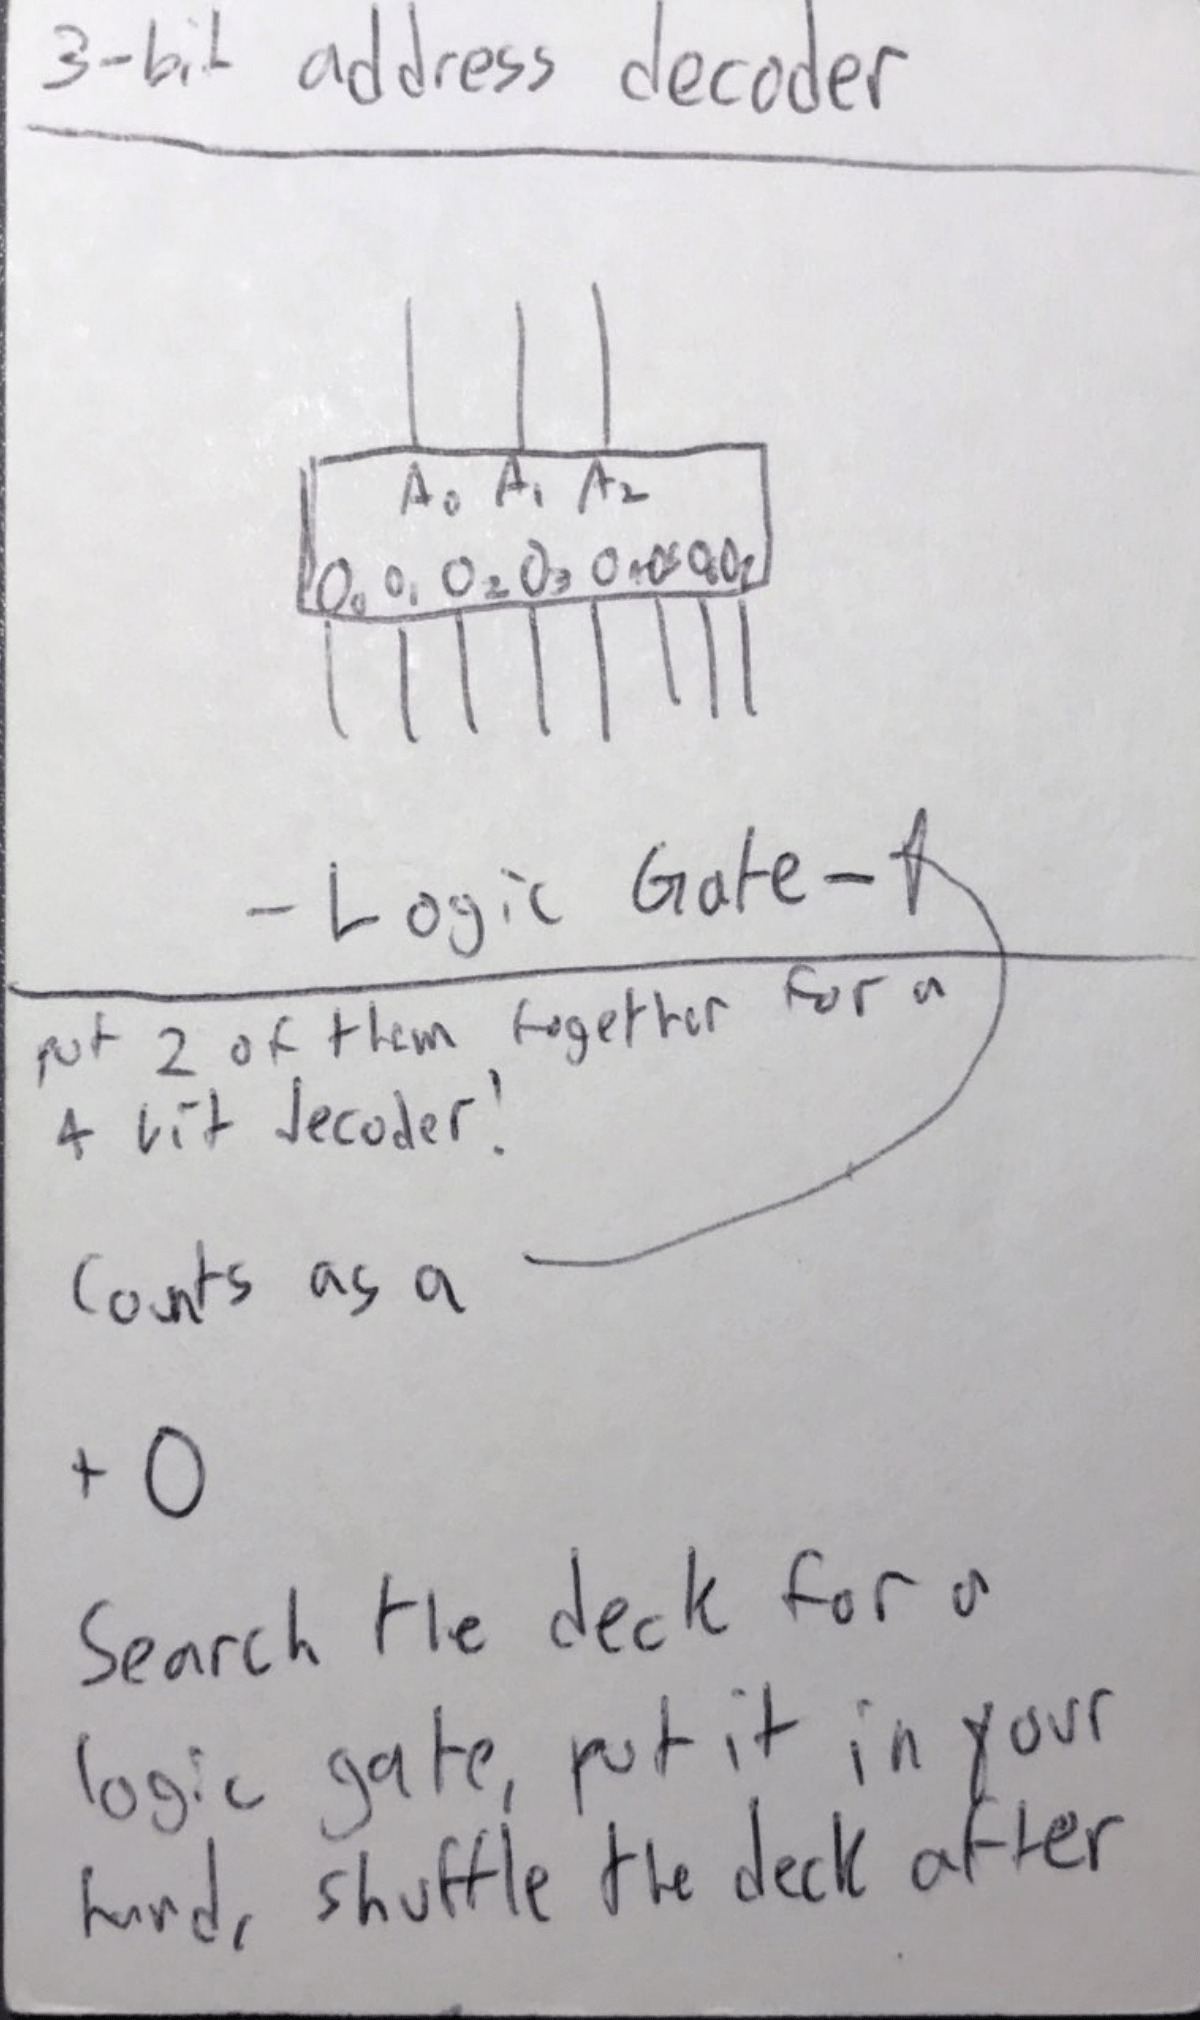 3-bit address decoder
A₀ A₁ A₂
O₀ O₁ O₂ O₃ O₄ O₅ O₆ O₇
- Logic Gate -
put 2 of them together for a
4 bit decoder!
Counts as a
+ 0
Search the deck for a
logic gate, put it in your
hand, shuffle the deck after